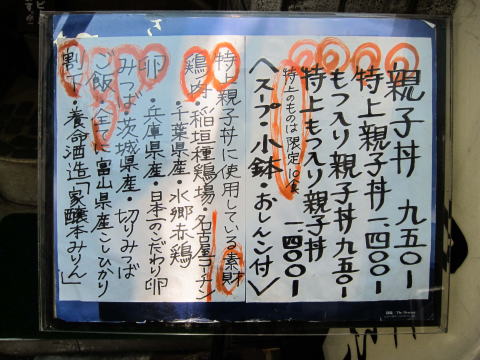 親子丼 九五〇-
特上親子丼 一、四〇〇-
もつ入り親子丼 九五〇-
特上もつ入り親子丼 一、四〇〇-
特上のものは限定10食
〈スープ・小鉢・おしんこ付〉
特上親子丼に使用している素財
鶏肉・稲垣種鶏場・名古屋コーチン
・千葉県産・水郷赤鶏
卵・兵庫県産・日本一こだわり卵
みつば・茨城県産・切りみつば
ご飯・全てに富山県産こしひかり
割下・養命酒造「家醸本みりん」